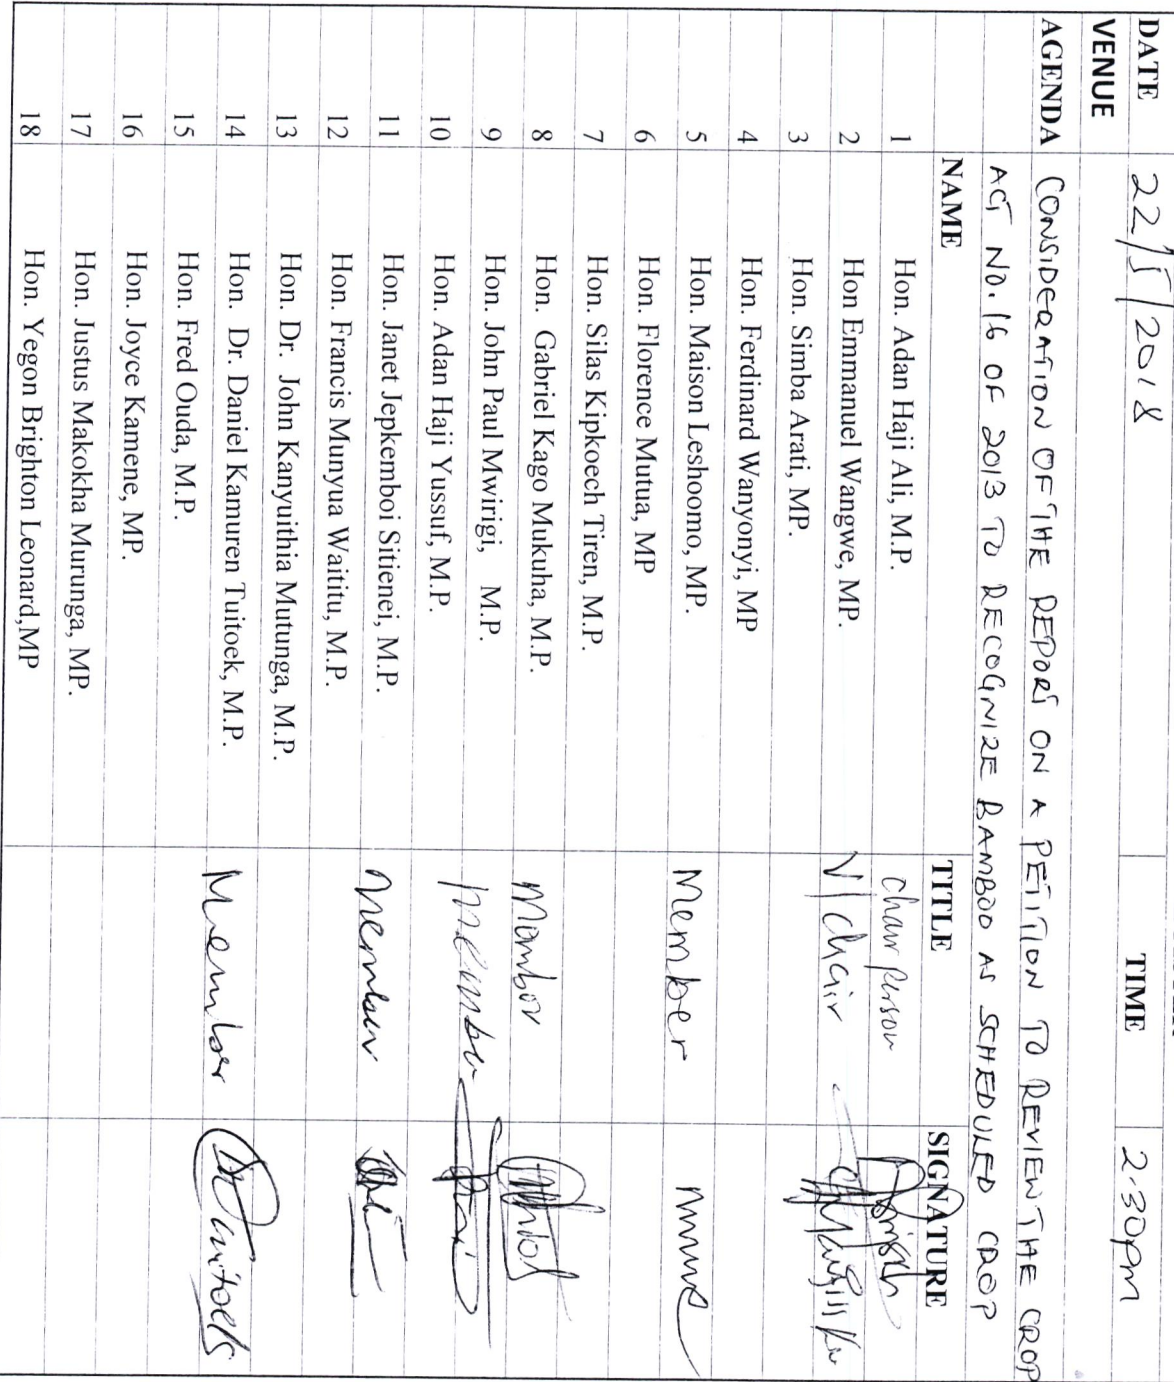 DATE 22/5/2018 TIME 2.30pm
VENUE
AGENDA CONSIDERATION OF THE REPORT ON A PETITION TO REVIEW THE CROP
ACT NO. 16 OF 2013 TO RECOGNIZE BAMBOO AS SCHEDULED CROP
NAME TITLE SIGNATURE
1 Hon. Adan Haji Ali, M.P. Chair person
2 Hon Emmanuel Wangwe, MP. V/Chair
3 Hon. Simba Arati, MP.
4 Hon. Ferdinard Wanyonyi, MP
5 Hon. Maison Leshoomo, MP. Member
6 Hon. Florence Mutua, MP
7 Hon. Silas Kipkoech Tiren, M.P.
8 Hon. Gabriel Kago Mukuha, M.P. Member
9 Hon. John Paul Mwirigi, M.P. Member
10 Hon. Adan Haji Yussuf, M.P.
11 Hon. Janet Jepkemboi Sitienei, M.P. Member
12 Hon. Francis Munyua Waititu, M.P.
13 Hon. Dr. John Kanyuithia Mutunga, M.P.
14 Hon. Dr. Daniel Kamuren Tuitoek, M.P. Member
15 Hon. Fred Ouda, M.P.
16 Hon. Joyce Kamene, MP.
17 Hon. Justus Makokha Murunga, MP.
18 Hon. Yegon Brighton Leonard,MP